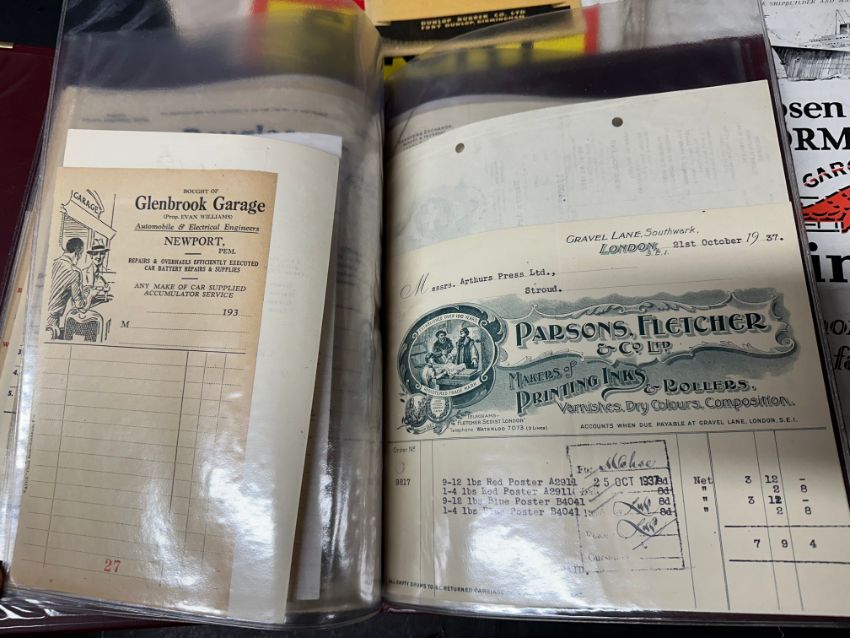 DUNLOP RUBBER CO. LTD.
FORT DUNLOP, BIRMINGHAM
SHIPBUILDER AND
GARAGE
BOUGHT OF
Glenbrook Garage
(Prop. EVAN WILLIAMS)
Automobile & Electrical Engineers
NEWPORT,
PEM.
REPAIRS & OVERHAULS EFFICIENTLY EXECUTED
CAR BATTERY REPAIRS & SUPPLIES
ANY MAKE OF CAR SUPPLIED
ACCUMULATOR SERVICE
193
M
27
GRAVEL LANE, Southwark,
LONDON, 21st October 1937.
S.E.1.
Messrs. Arthurs Press Ltd.,
Stroud.
ESTABLISHED OVER 100 YEARS
REGISTERED TRADE MARK
PARSONS, FLETCHER
& CO LTD
MAKERS of
PRINTING INKS
& ROLLERS,
Varnishes, Dry Colours, Composition.
TELEGRAMS-
FLETCHER SEDIST LONDON
Telephone WATERLOO 7073 (3 LINES)
ACCOUNTS WHEN DUE PAYABLE AT GRAVEL LANE, LONDON, S.E.1.
Order No
9817
9-12 lbs Red Poster A2911 8d Net 3 12 -
1-4 lbs Red Poster A2911 8d " 2 8
9-12 lbs Blue Poster B4041 8d " 3 12 -
1-4 lbs Blue Poster B4041 8d " 2 8
25 OCT 1937
7 9 4
ALL EMPTY DRUMS TO BE RETURNED CARRIAGE
osen
ORM
GARG
in